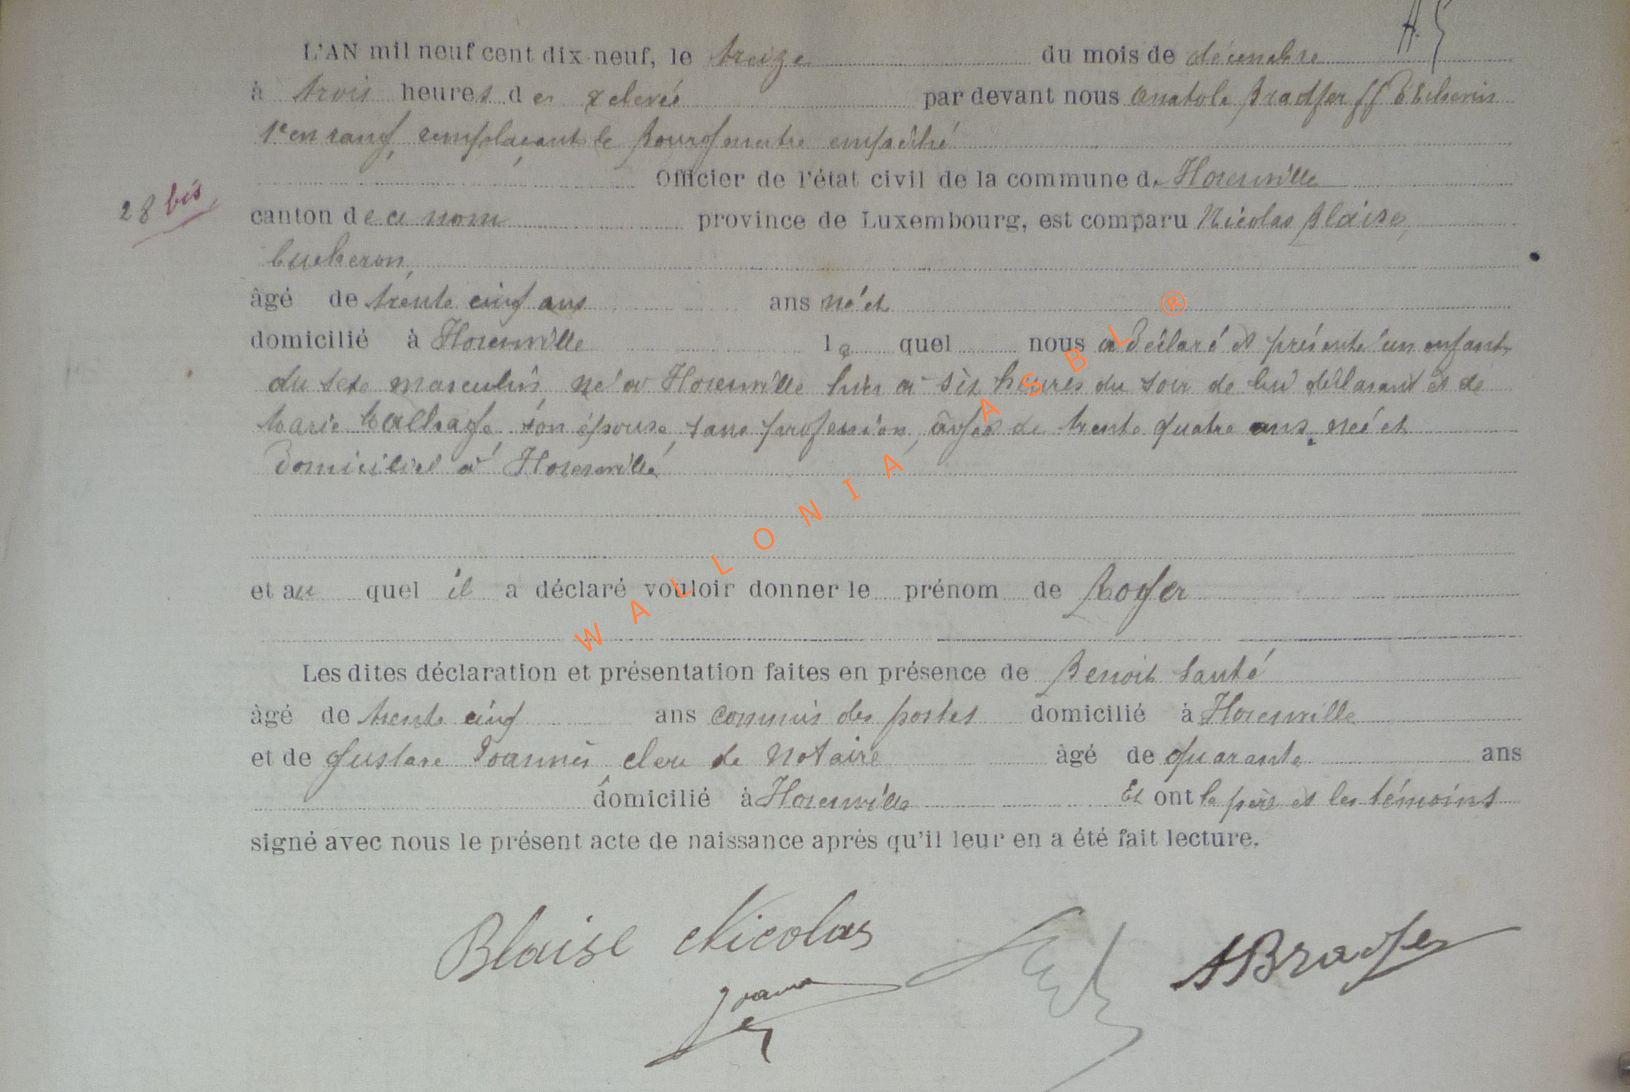 A. S
L'AN mil neuf cent dix-neuf, le treize du mois de décembre
à trois heures de relevée par devant nous Anatole Bradfer ff d'Echevin
1er en rang, remplaçant le Bourgmestre empêché
Officier de l'état civil de la commune de Florenville
28 bis
canton de ce nom province de Luxembourg, est comparu Nicolas Blaise,
bucheron,
âgé de trente cinq ans ans né et
domicilié à Florenville le quel nous a déclaré et présenté un enfant
du sexe masculin, né à Florenville hier à six heures du soir de lui déclarant et de
Marie son épouse, sans profession, âgée de trente quatre ans, née et
domiciliée à Florenville
et au quel il a déclaré vouloir donner le prénom de Roger
Les dites déclaration et présentation faites en présence de Benoit Santé
âgé de trente cinq ans commis des postes domicilié à Florenville
et de Gustave Joannès clerc de Notaire âgé de quarante ans
domicilié à Florenville Et ont le père et les témoins
signé avec nous le présent acte de naissance après qu'il leur en a été fait lecture.
Blaise Nicolas
ABradfer
WALLONIA ASBL ®